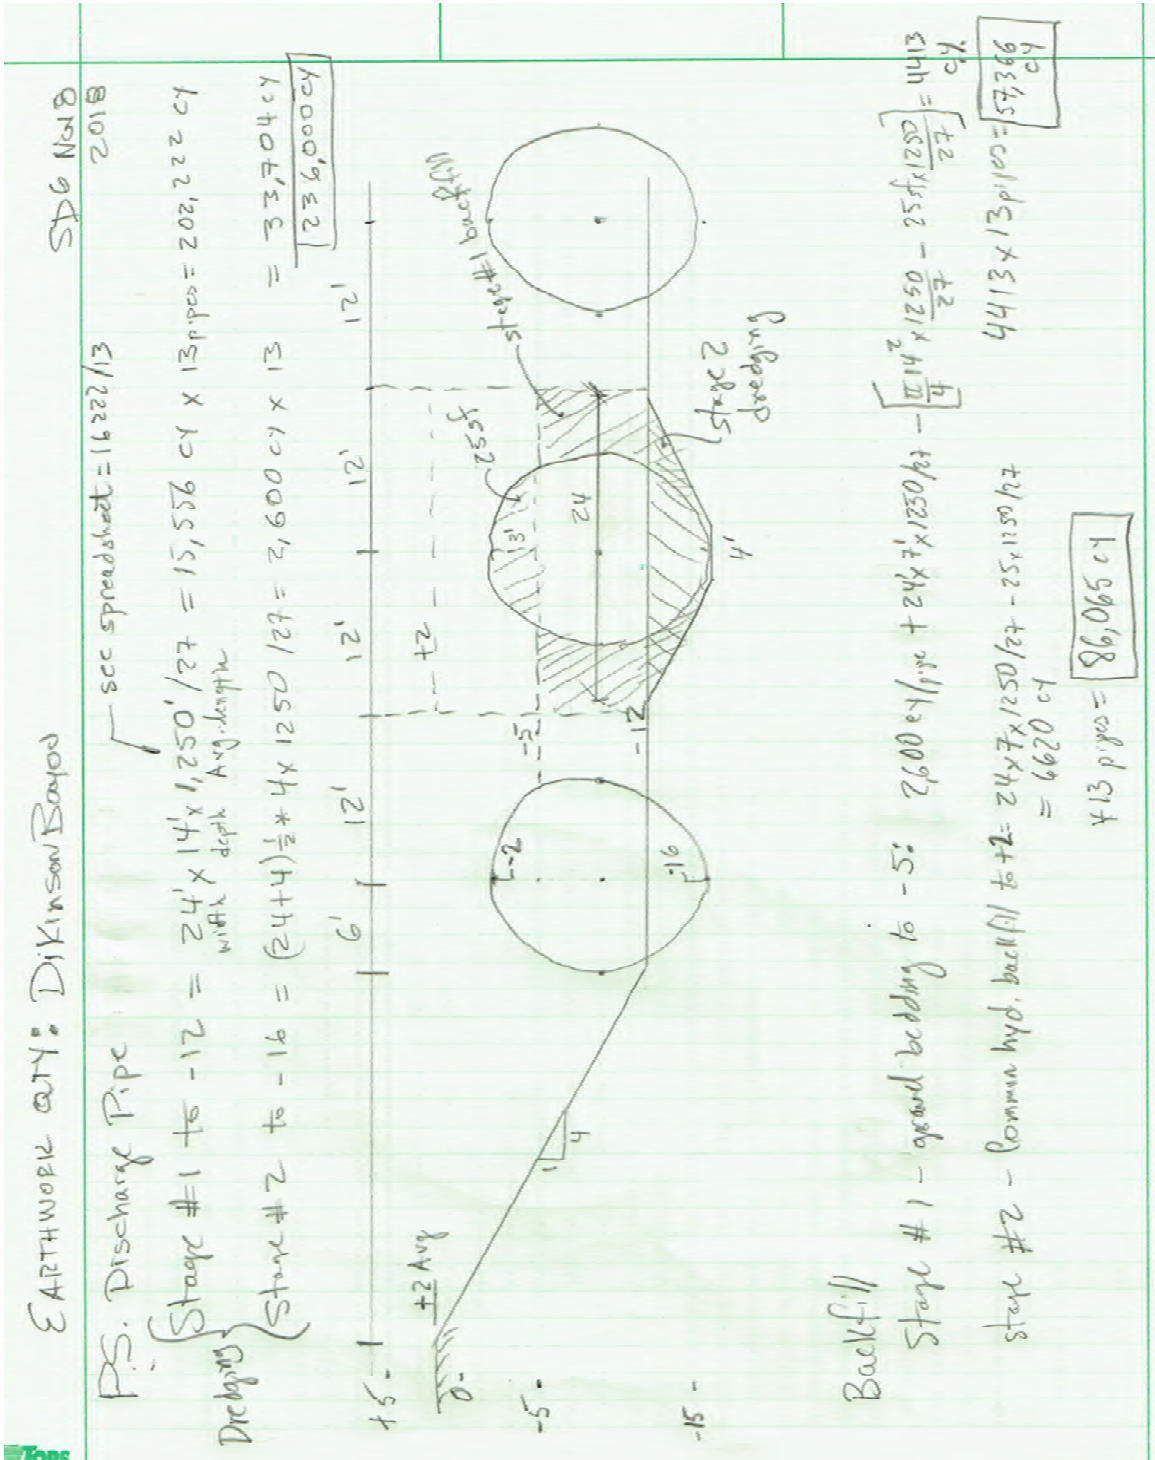 EARTHWORK QTY: DiKinson Bayou
SDG Nov 8
2018
P.S. Discharge Pipe
see spreadsheet = 16222/13
Dredging
Stage #1 to -12 = 24' x 14' x 1,250' /27 = 15,556 CY x 13 pipes = 202,222 CY
width depth Avg. length
Stage #2 to -16 = (24+4)½ * 4 x 1250 /27 = 2,600 CY x 13 = 33,704 CY
236,000 CY
6' 12' 12' 12' 12'
+5 -
+2 Avg
+2
0-
stage #1 backfill
25sf
-2
3'
-5 -
-5
1
4
24
-12
-15 -
-16
4'
stage 2
dredging
Backfill
Stage #1 - gravel bedding to -5: 2,600 cy/pipe + 24'x 7'x1250/27 - [π14²/4 x 1250/27 - 25sf x 1250/27] = 4413 cy.
4413 x 13 pipes = 57,366 CY
Stage #2 - Common hyd. backfill to +2 = 24x7x1250/27 - 25x1250/27
= 6620 cy
x13 pipes = 86,065 CY
TOPS